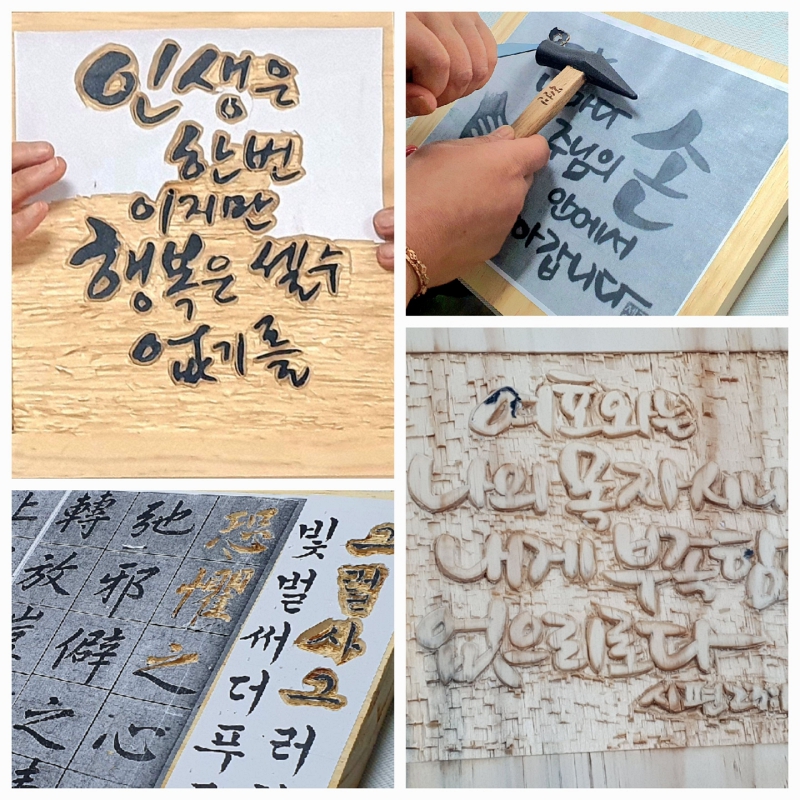 인생은
한번
이지만
행복은 셀수
없기를
주님의 손
안에서
아갑니다
그걸사그러
빛벌써더푸
恐懼之心
弛邪僻之
轉放
여호와는
나의 목자시니
내게 부족함
없으리로다
시편23